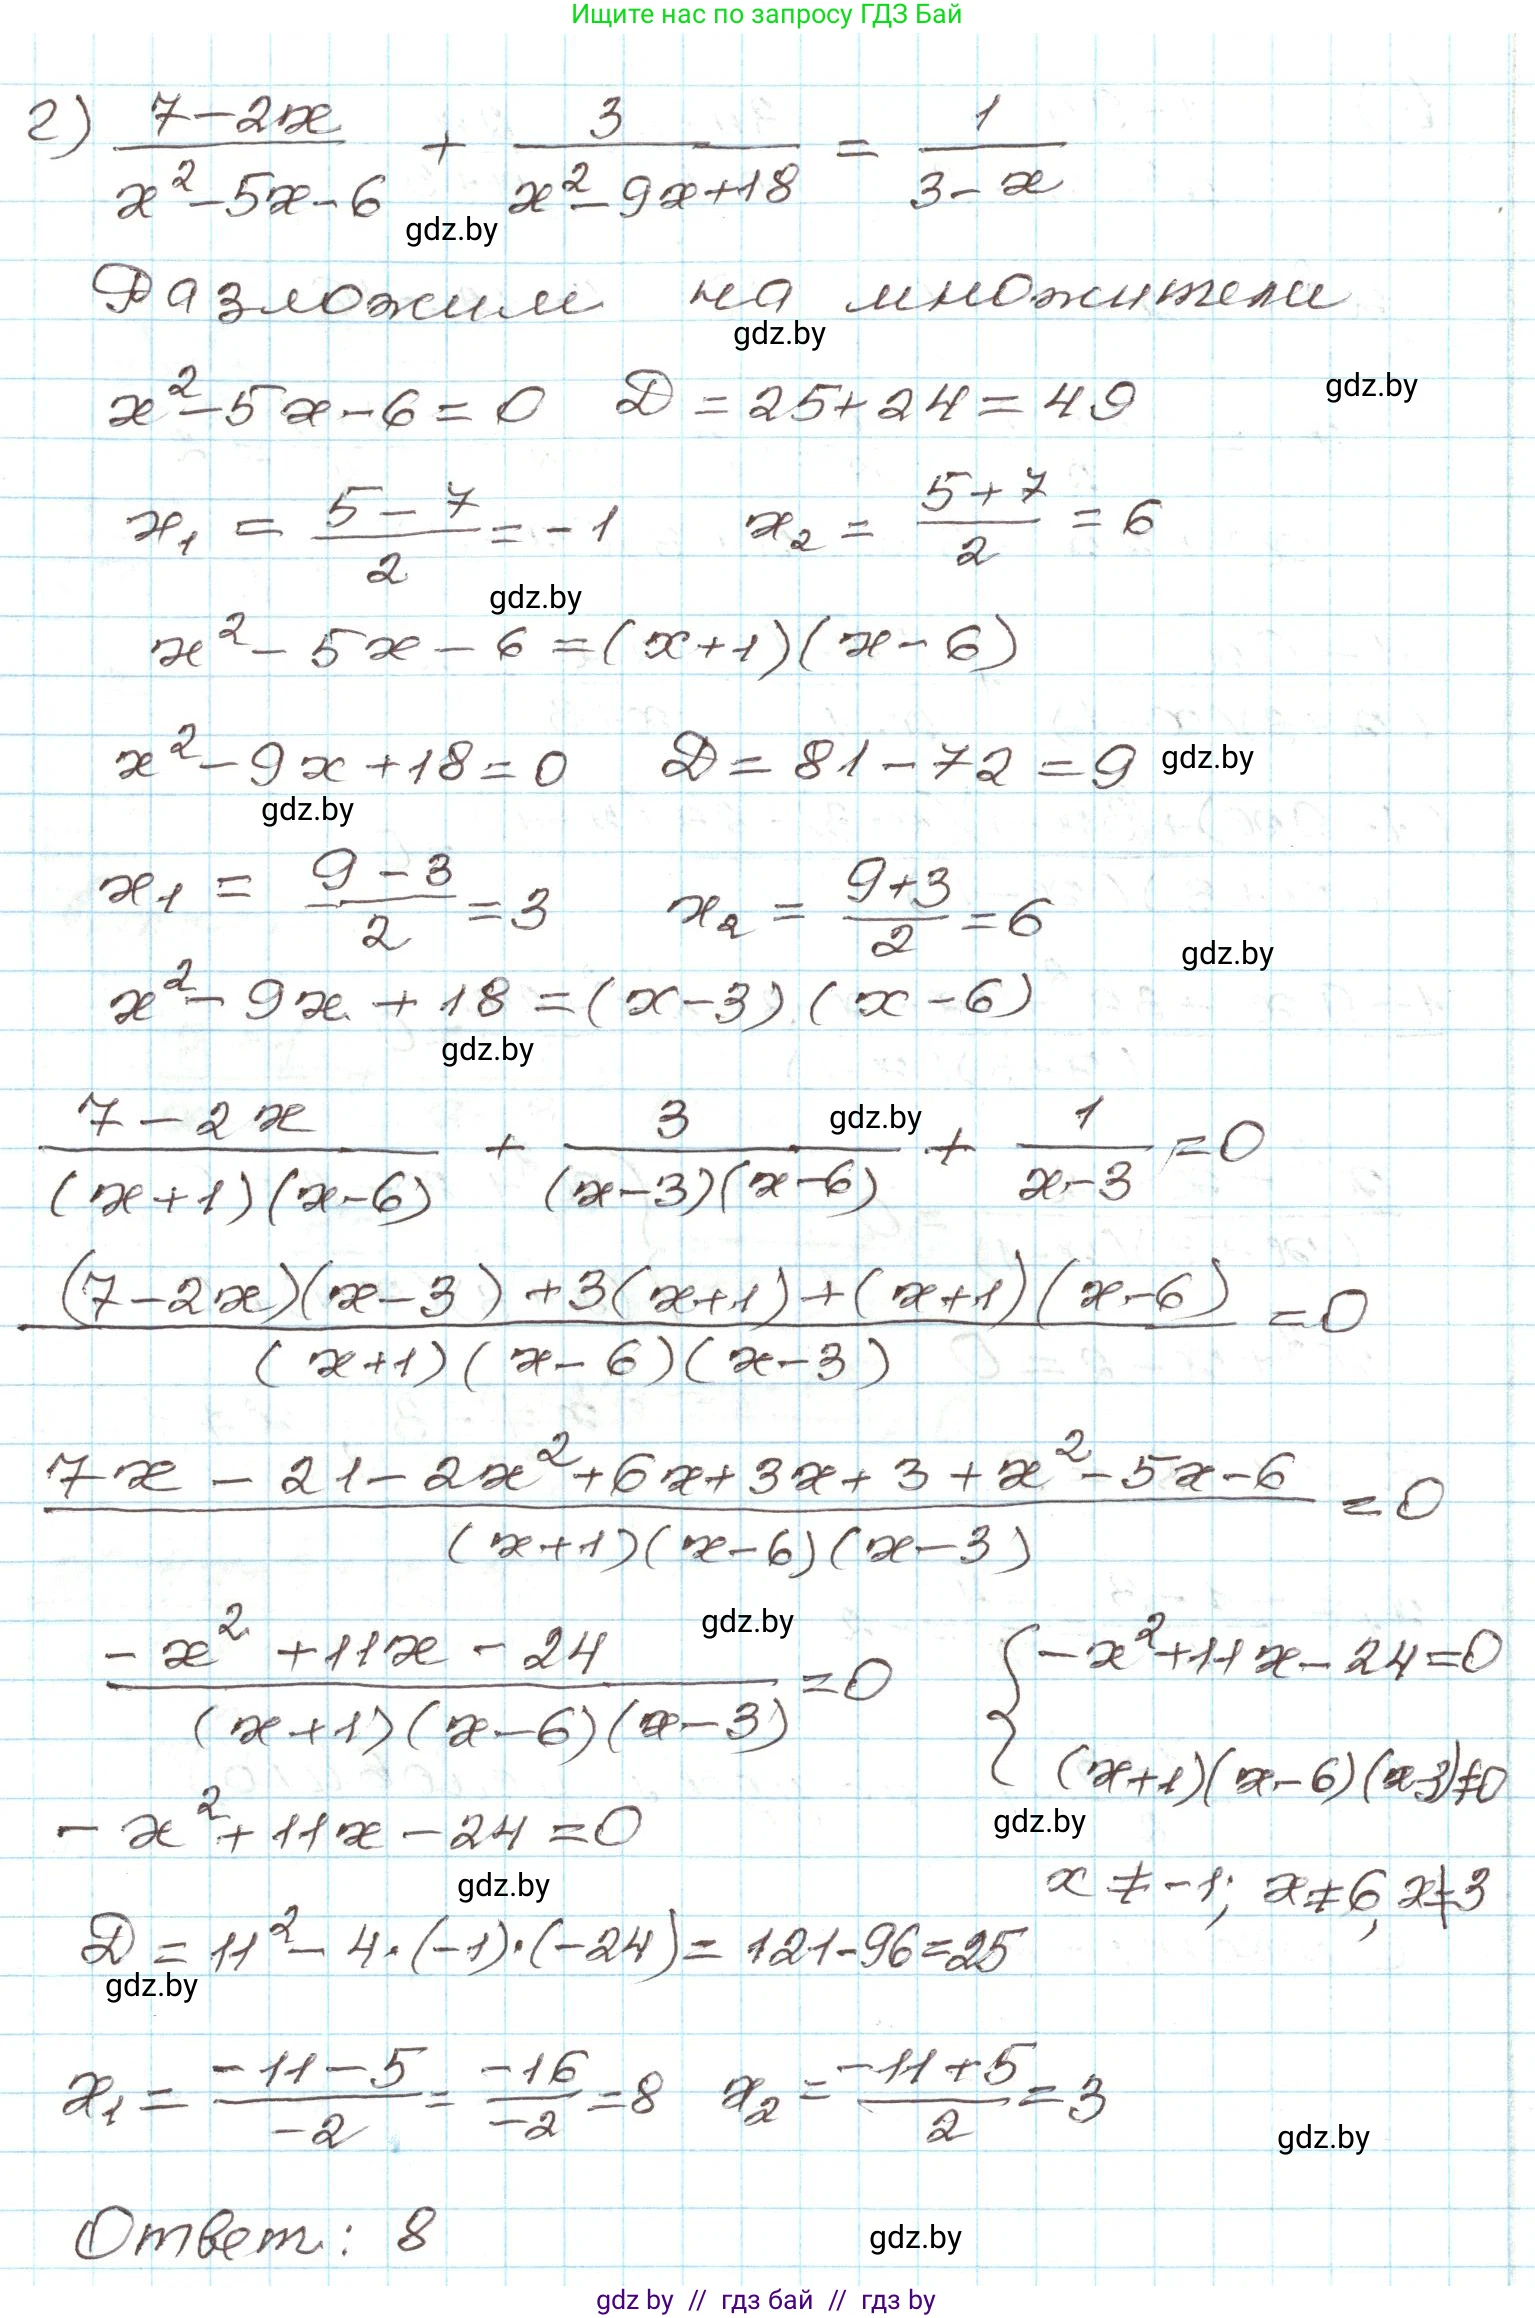 Ищите нас по запросу ГДЗ Бай
г) (7-2x)/(x²-5x-6) + 3/(x²-9x+18) = 1/(3-x)
gdz.by
Разложим на множители
gdz.by
x²-5x-6=0 D=25+24=49
gdz.by
x₁ = (5-7)/2 = -1 x₂ = (5+7)/2 = 6
gdz.by
x²-5x-6=(x+1)(x-6)
x²-9x+18=0 D=81-72=9
gdz.by
gdz.by
x₁ = (9-3)/2 = 3 x₂ = (9+3)/2 = 6
gdz.by
x²-9x+18=(x-3)(x-6)
gdz.by
(7-2x)/((x+1)(x-6)) + 3/((x-3)(x-6)) + 1/(x-3) = 0
gdz.by
((7-2x)(x-3)+3(x+1)+(x+1)(x-6))/((x+1)(x-6)(x-3)) = 0
(7x-21-2x²+6x+3x+3+x²-5x-6)/((x+1)(x-6)(x-3)) = 0
gdz.by
(-x²+11x-24)/((x+1)(x-6)(x-3)) = 0 { -x²+11x-24=0
(x+1)(x-6)(x-3)≠0
gdz.by
-x²+11x-24=0
gdz.by
x≠-1; x≠6, x≠3
D=11²-4·(-1)·(-24)=121-96=25
gdz.by
x₁ = (-11-5)/(-2) = (-16)/(-2) = 8 x₂ = (-11+5)/2 = 3
gdz.by
Ответ: 8
gdz.by
gdz by // гдз бай // гдз by